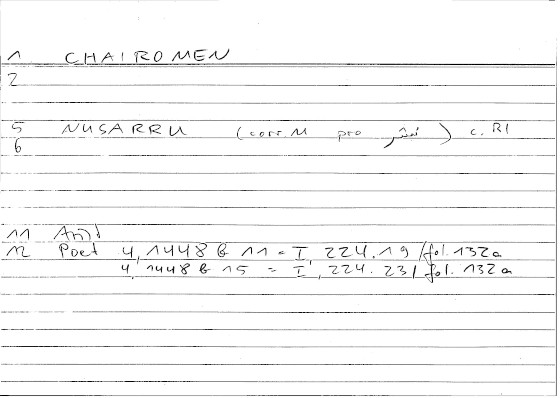 1 CHAIROMEN
2
5 NUSARRU (corr. M pro نسر) c. RI
6
11 Arist
12 Poet 4, 1448 b 11 = I, 224.19 / fol. 132a
4, 1448 b 15 = I, 224.23 / fol. 132a